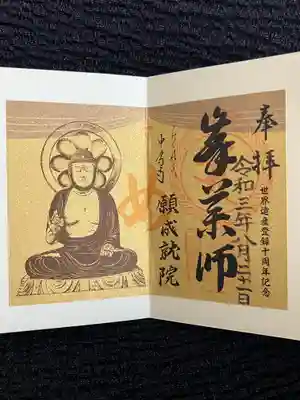 奉拝
世界遺産登録十周年記念
令和三年八月二十一日
峯薬師
願成就院